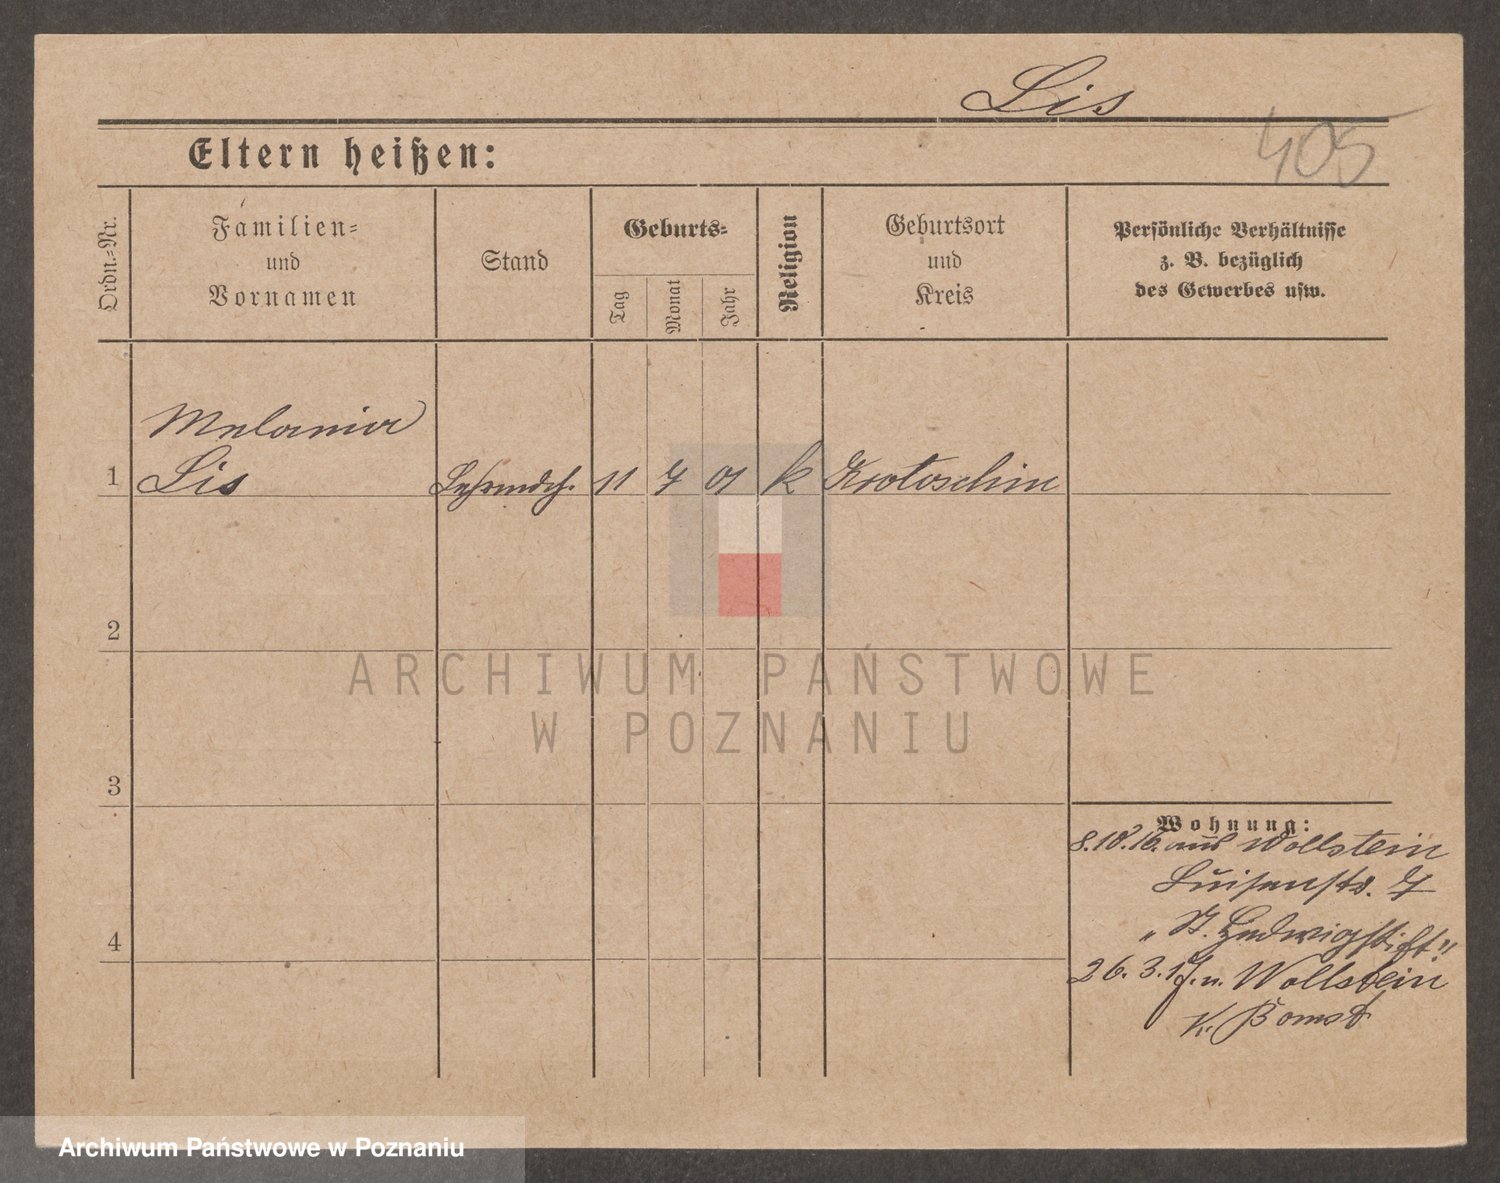 Lis
405
Eltern heißen:
Ordn.-Nr.
Familien-
und
Vornamen
Stand
Geburts-
Tag
Monat
Jahr
Religion
Geburtsort
und
Kreis
Persönliche Verhältnisse
z. B. bezüglich
des Gewerbes usw.
Melania
1 Lis Lehrmdch. 11 7 01 k Krotoschin
2
3
4
Wohnung:
8.10.16. aus Wollstein
Luisenstr. 7
„St. Hedwigstift"
26. 3. 17. n. Wollstein
K. Bomst
ARCHIWUM PAŃSTWOWE
W POZNANIU
Archiwum Państwowe w Poznaniu